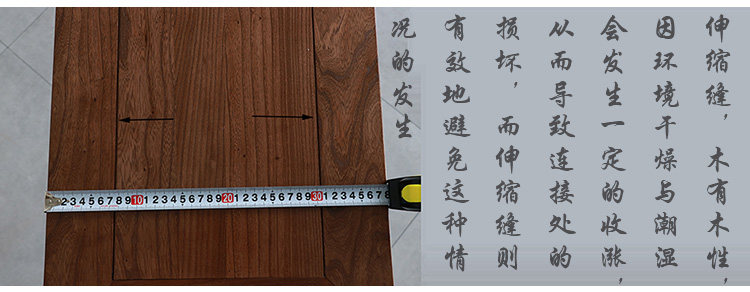 伸缩缝，木有木性，
因环境干燥与潮湿
会发生一定的收涨，
从而导致连接处的
损坏，而伸缩缝则
有效地避免这种情
况的发生
2 3 4 5 6 7 8 9 10 1 2 3 4 5 6 7 8 9 20 1 2 3 4 5 6 7 8 9 30 1 2 3 4 5 6 7 8